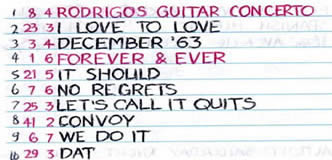 1 8 4 RODRIGOS GUITAR CONCERTO
2 23 3 I LOVE TO LOVE
3 3 4 DECEMBER '63
4 1 6 FOREVER & EVER
5 21 5 IT SHOULD
6 7 6 NO REGRETS
7 25 3 LET'S CALL IT QUITS
8 41 2 CONVOY
9 6 7 WE DO IT
10 29 3 DAT